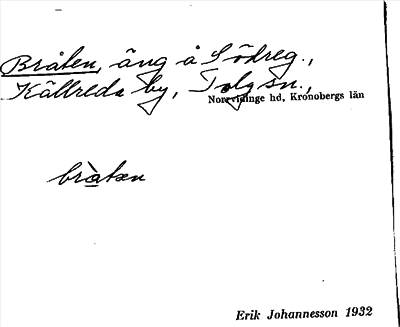 Bråten, äng å Södreg.,
Källreda by, Tolg sn.,
Norrvidinge hd, Kronobergs län
bràtən
Erik Johannesson 1932